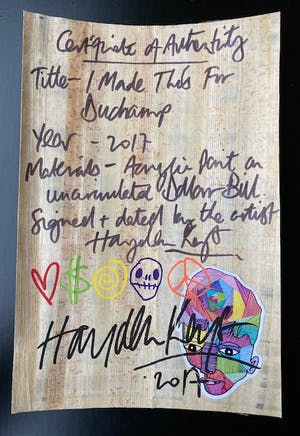 Certificate of Authenticity
Title - I Made This For
Duchamp
Year - 2017
Materials - Acrylic Paint on
uncirculated Dollar Bill.
Signed + dated by the artist
Hayden Kays
$
Hayden Kays
2017